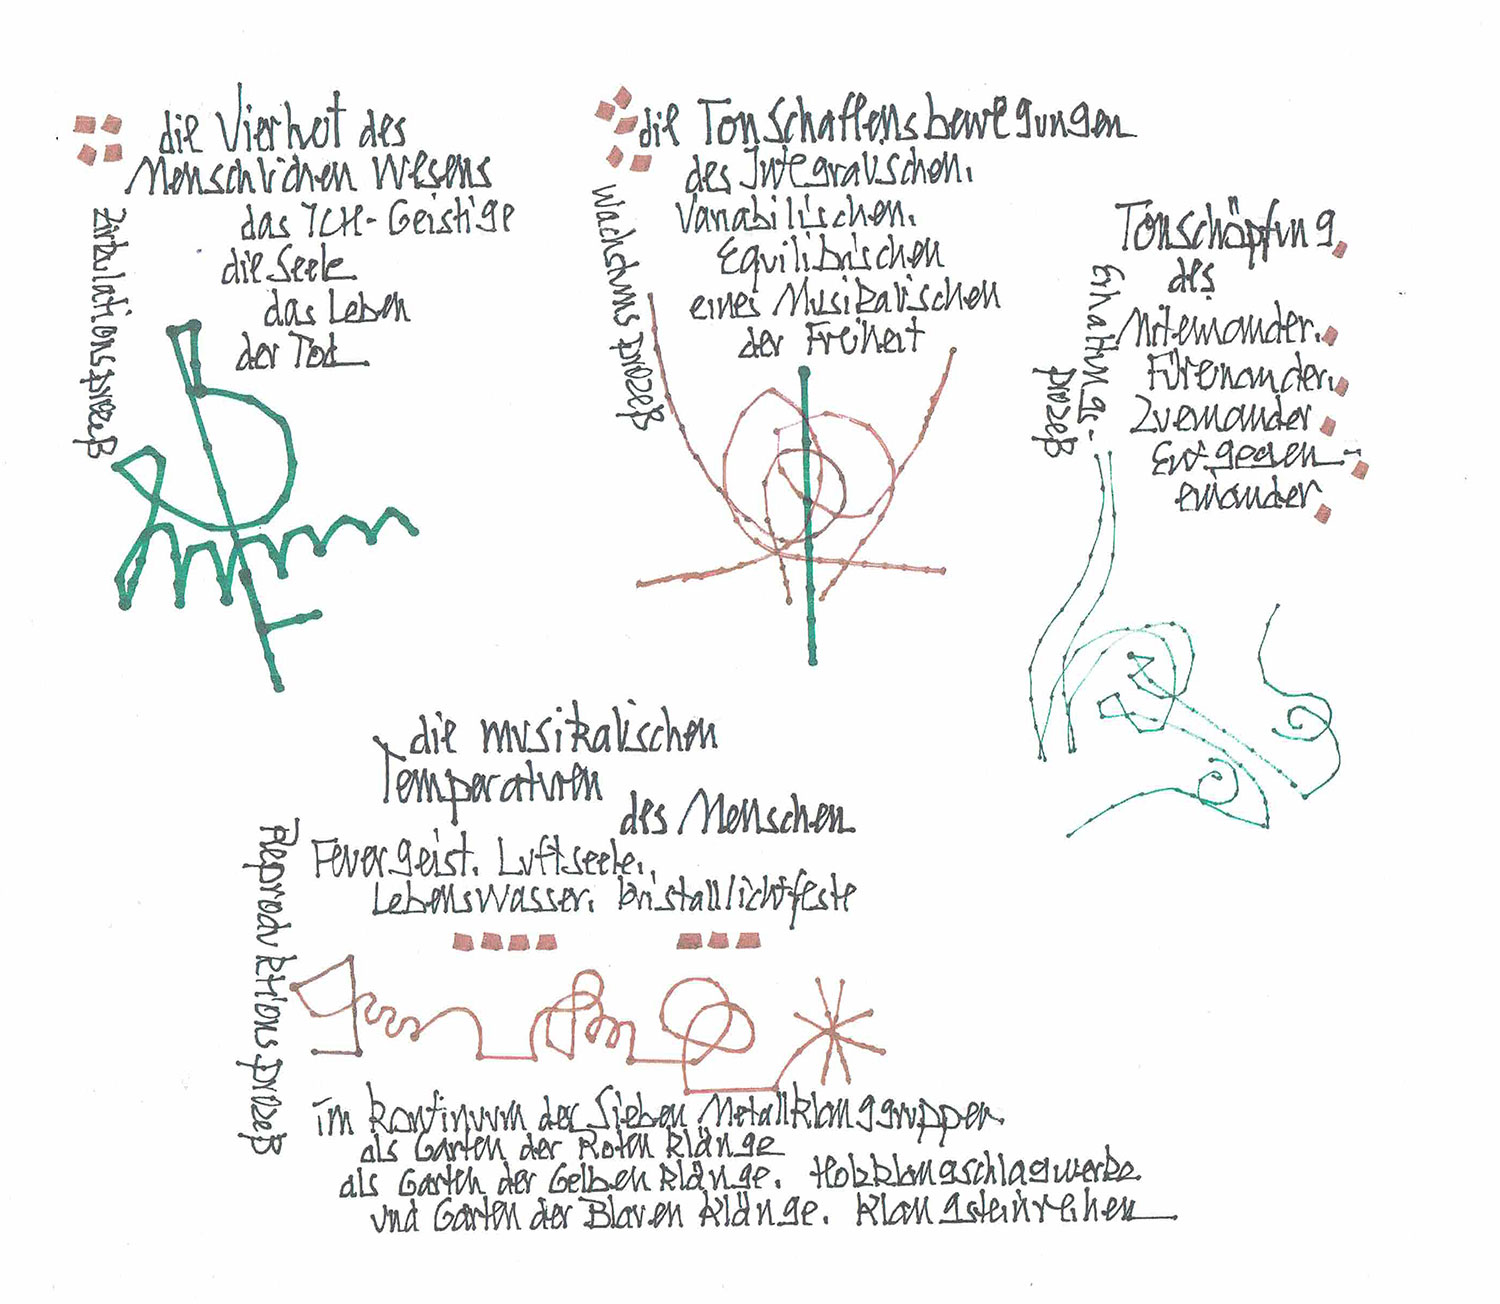 die Vierheit des
Menschlichen Wesens
das ICH-Geistige
die Seele
das Leben
der Tod
Zirkulationsprozeß
die Tonschaffensbewegungen
des Integralischen.
Variabilischen.
Equilibrischen
eines Musikalischen
der Freiheit
Wachstumsprozeß
Tonschöpfung
des
Miteinander.
Füreinander.
Zueinander
Entgegen-
einander
Erhaltungs-
prozeß
die musikalischen
Temperaturen
des Menschen
Feuergeist. Luftseele.
Lebenswasser. Kristallichtfeste
Reproduktionsprozeß
im Kontinuum der Sieben Metallklanggruppen
als Garten der Roten Klänge
als Garten der Gelben Klänge. Holzklangschlagwerke
und Garten der Blauen Klänge. Klangsteinreihen